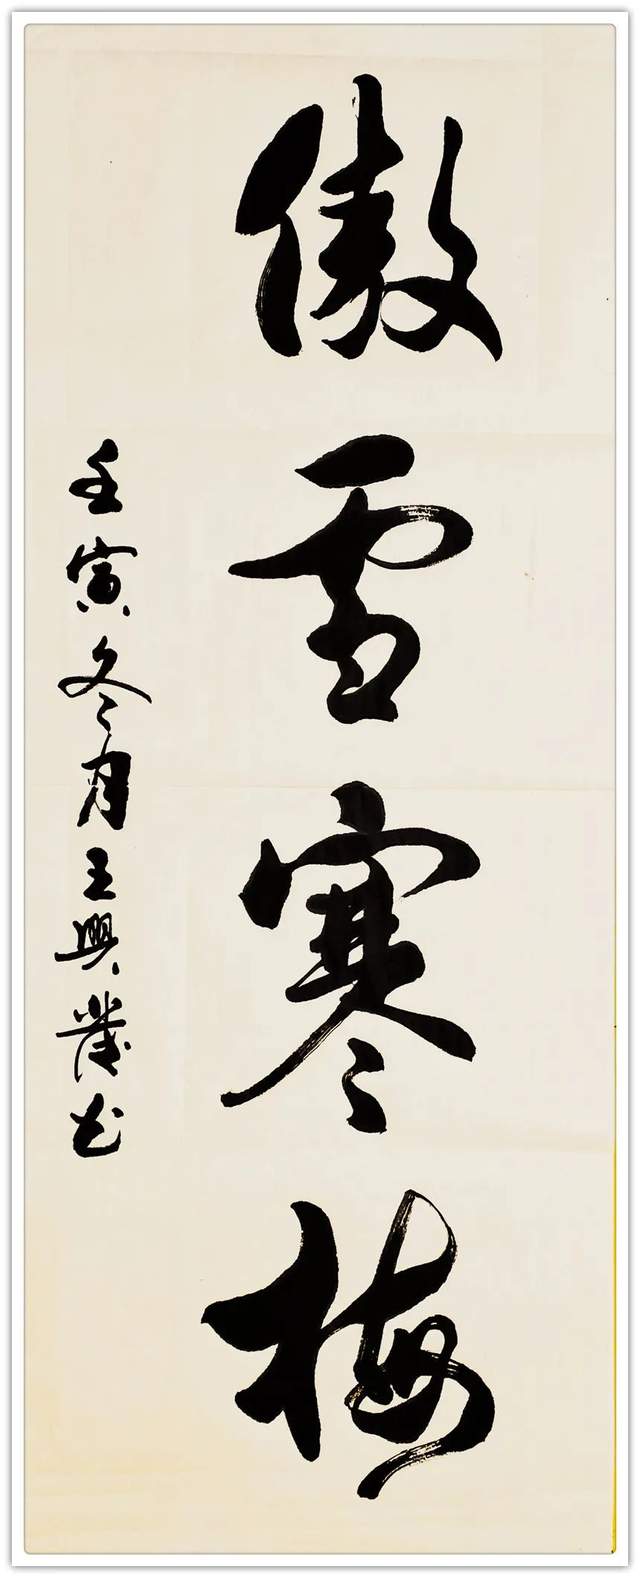 傲雪寒梅
壬寅冬月王興